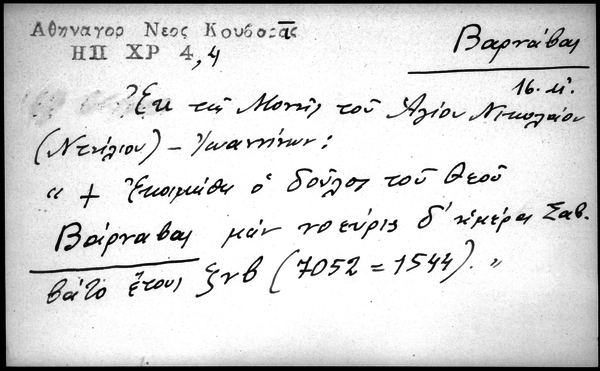 Αθηναγορ Νεος Κουβαρᾶς
ΗΠ ΧΡ 4,4
Βαρνάβας
16. μ.
Ἐκ τῆς Μονῆς τοῦ Ἁγίου Νικολάου
(Ντίλιου) – Ἰωαννίνων:
" + Ἐκοιμήθη ὁ δοῦλος τοῦ Θεοῦ
Βάρναβας μὰν νοεύρις δ' ἡμέρα Σαβ.
βάτο ἔτους ζνβ (7052 = 1544). "